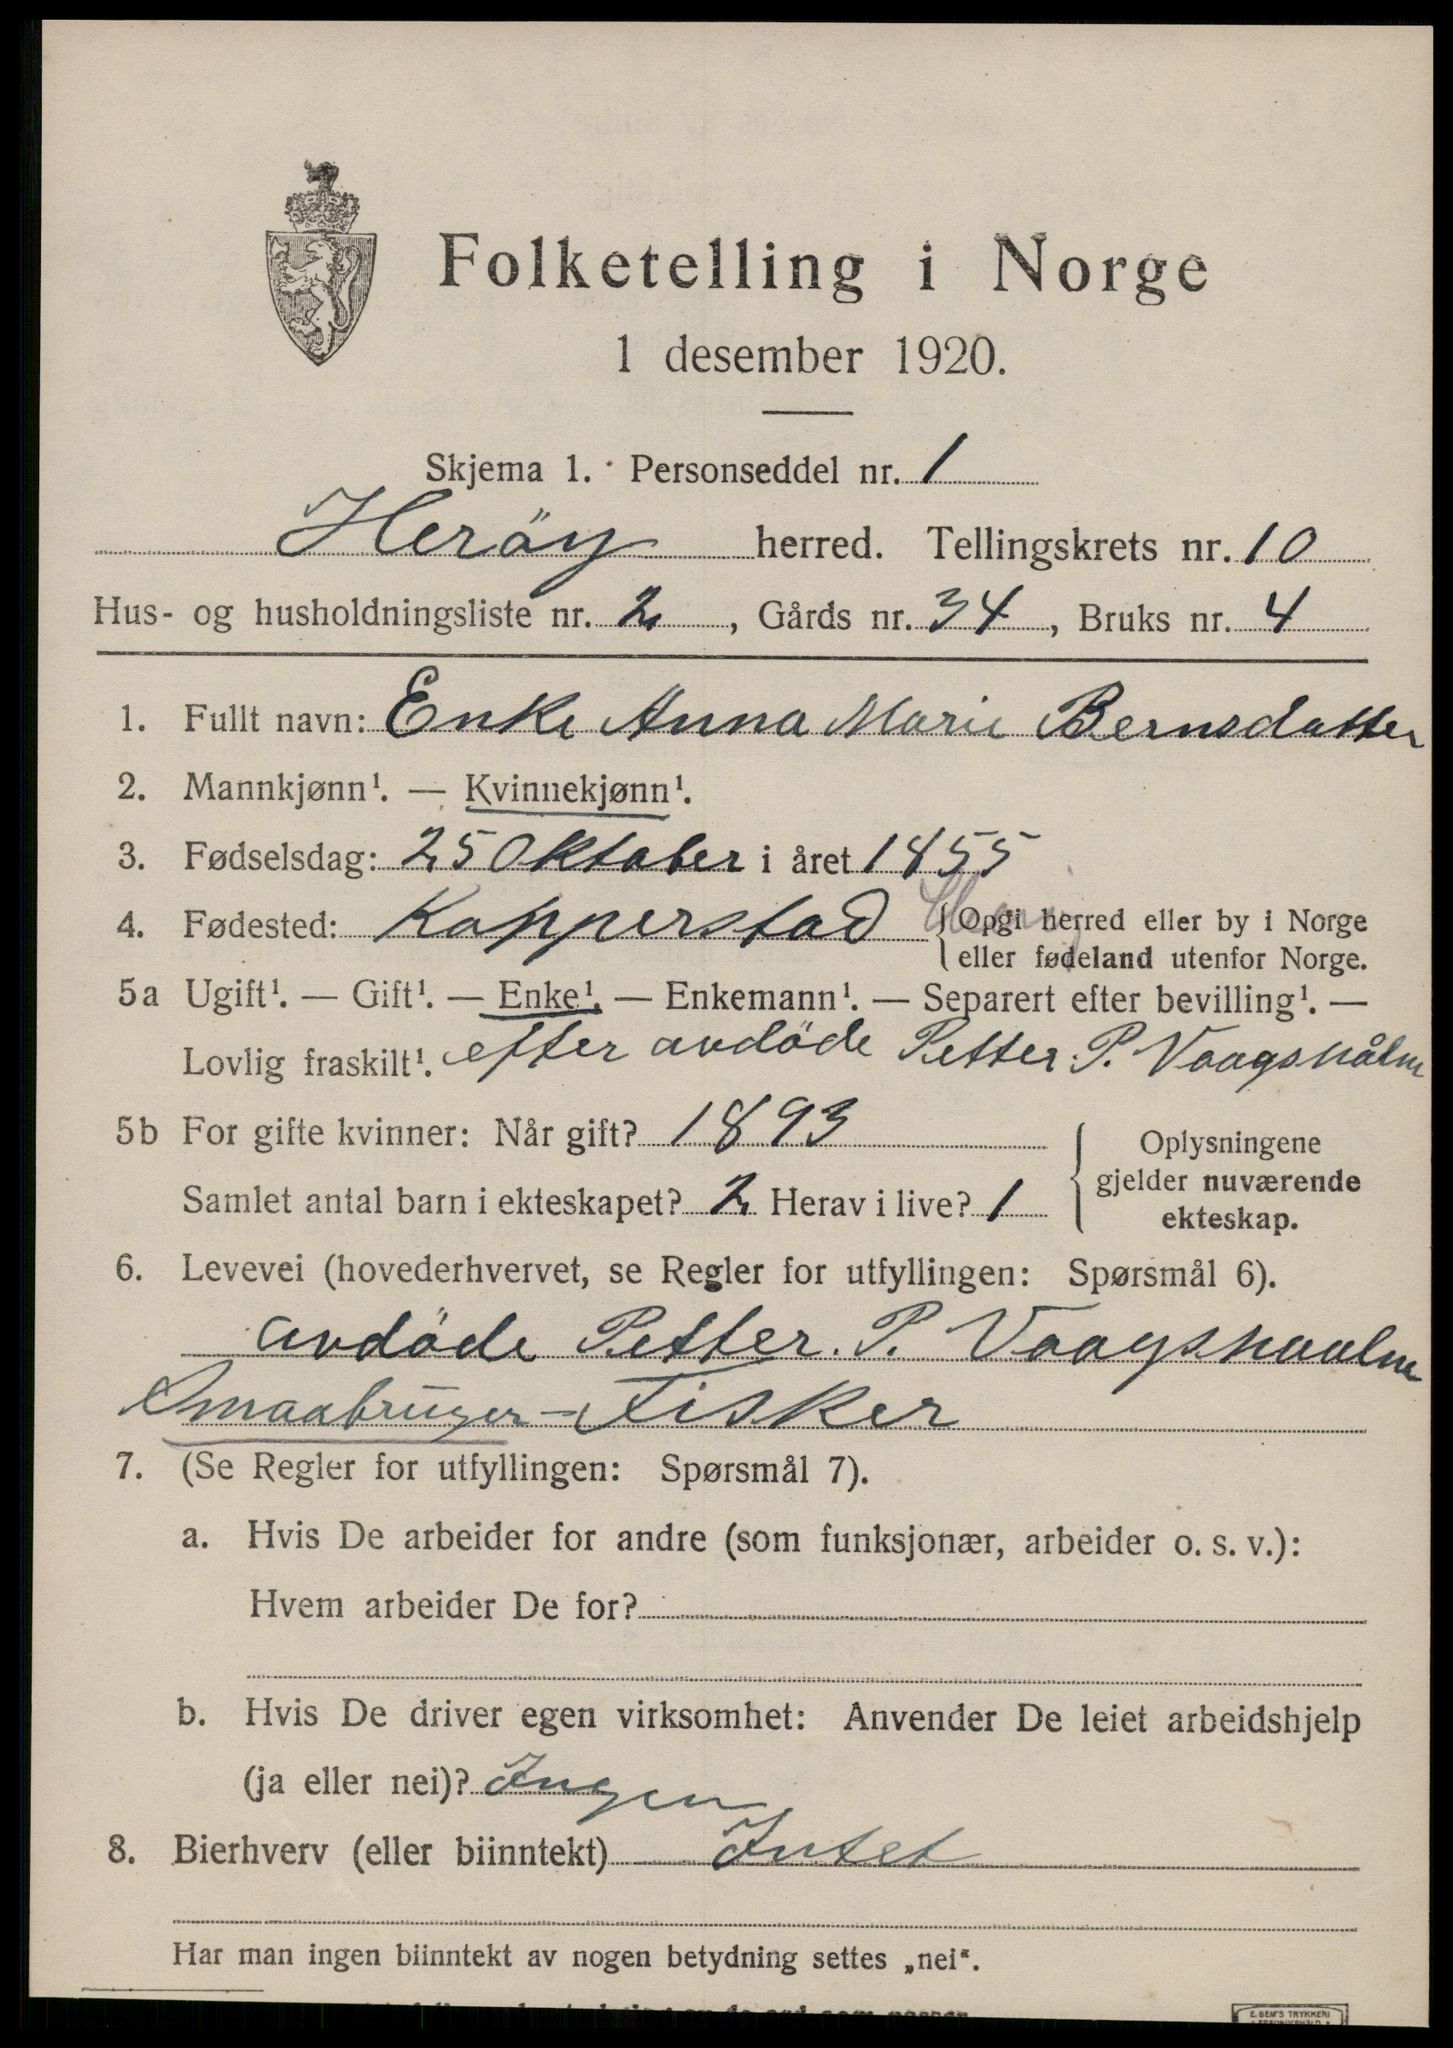 Folketelling i Norge
1 desember 1920.
Skjema 1. Personseddel nr. 1
Heröy herred. Tellingskrets nr. 10
Hus- og husholdningsliste nr. 2, Gårds nr. 34, Bruks nr. 4
1. Fullt navn: Enke Anna Marie Bernsdatter
2. Mannkjønn¹. — Kvinnekjønn¹.
3. Fødselsdag: 25 Oktober i året 1855
4. Fødested: Kopperstad {Opgi herred eller by i Norge
eller fødeland utenfor Norge.
5a Ugift¹. — Gift¹. — Enke¹. — Enkemann¹. — Separert efter bevilling¹. —
Lovlig fraskilt¹. efter avdöde Petter. P. Vaagshålm
5b For gifte kvinner: Når gift? 1893
Samlet antal barn i ekteskapet? 2 Herav i live? 1
{Oplysningene
gjelder nuværende
ekteskap.
6. Levevei (hovederhvervet, se Regler for utfyllingen: Spørsmål 6).
avdöde Petter. P. Vaagshaalm
Smaabruger - Fisker
7. (Se Regler for utfyllingen: Spørsmål 7).
a. Hvis De arbeider for andre (som funksjonær, arbeider o. s. v.):
Hvem arbeider De for?
b. Hvis De driver egen virksomhet: Anvender De leiet arbeidshjelp
(ja eller nei)? Ingen
8. Bierhverv (eller biinntekt) Intet
Har man ingen biinntekt av nogen betydning settes „nei“.
E. SEM'S TRYKKERI